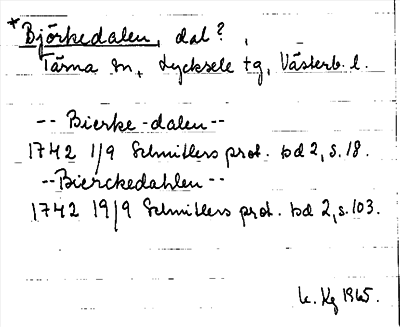 *Björkedalen, dal?,
Tärna sn, Lycksele tg, Västerb. l.
-- Bierke-dalen --
1742 1/9 Schnitlers prot. bd 2, s. 18.
-- Bierckedahlen --
1742 19/9 Schnitlers prot. bd 2, s. 103.
K. Kg 1965.